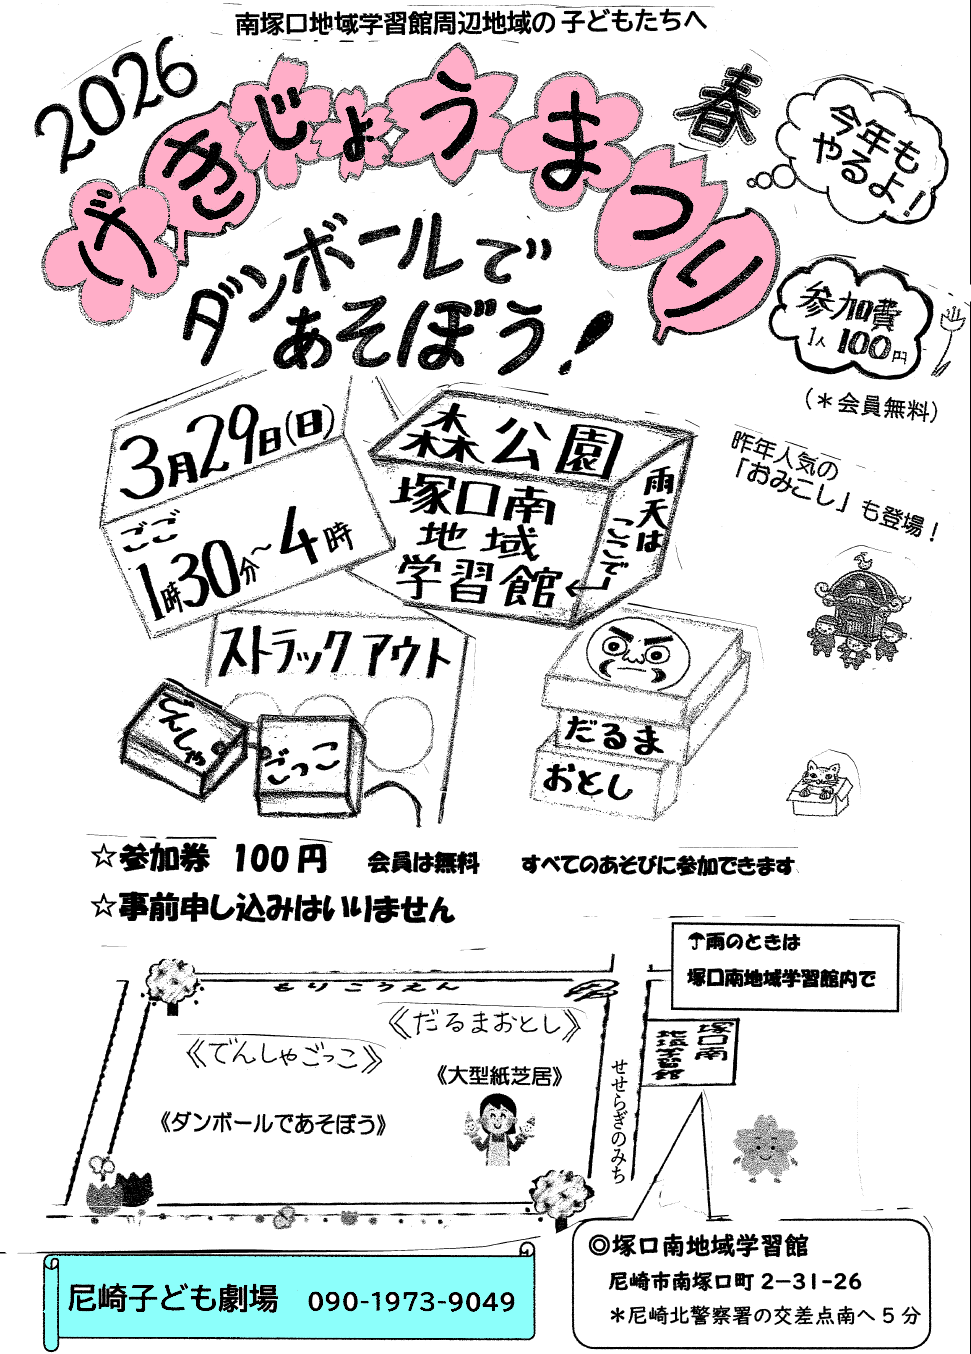 南塚口地域学習館周辺地域の子どもたちへ
2026
げきじょうまつり
春
今年も
やるよ!
ダンボールで
あそぼう!
参加費
1人 100円
(＊会員無料)
3月29日(日)
ごご
1時30分~4時
森公園
塚口南
地域
学習館
雨天は
ここで
昨年人気の
「おみこし」も登場!
ストラックアウト
でんしゃ
ごっこ
だるま
おとし
☆参加券 100円 会員は無料 すべてのあそびに参加できます
☆事前申し込みはいりません
☂雨のときは
塚口南地域学習館内で
もりこうえん
《だるまおとし》
《でんしゃごっこ》
《大型紙芝居》
《ダンボールであそぼう》
せせらぎのみち
塚口南
地域学習館
◎塚口南地域学習館
尼崎市南塚口町2-31-26
＊尼崎北警察署の交差点南へ5分
尼崎子ども劇場 090-1973-9049